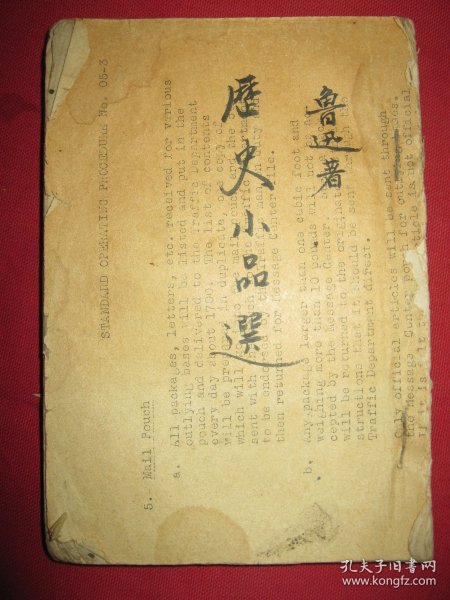 歷史小品選
魯迅著
STANDARD OPERATING PROCEDURE No. 05-3
5. Mail Pouch
a. All packages, letters, etc. received for various
outlying bases will be listed and put in the
pouch and delivered to the Traffic Department
every day about 1700. The list of contents
will be prepared in duplicate, one copy of
which will the
sent with
to be
then returned for Message Center file.
b. Any package larger than one cubic foot and
weighing more than 10 pounds will not be
cepted by the Message Center.
will be returned to the
structions that it should be sent
Traffic Department direct.
Only official articles will be sent through
the Message Center Pouch for outlying bases.
If it is felt article is not official
孔夫子旧书网
www.kongfz.com